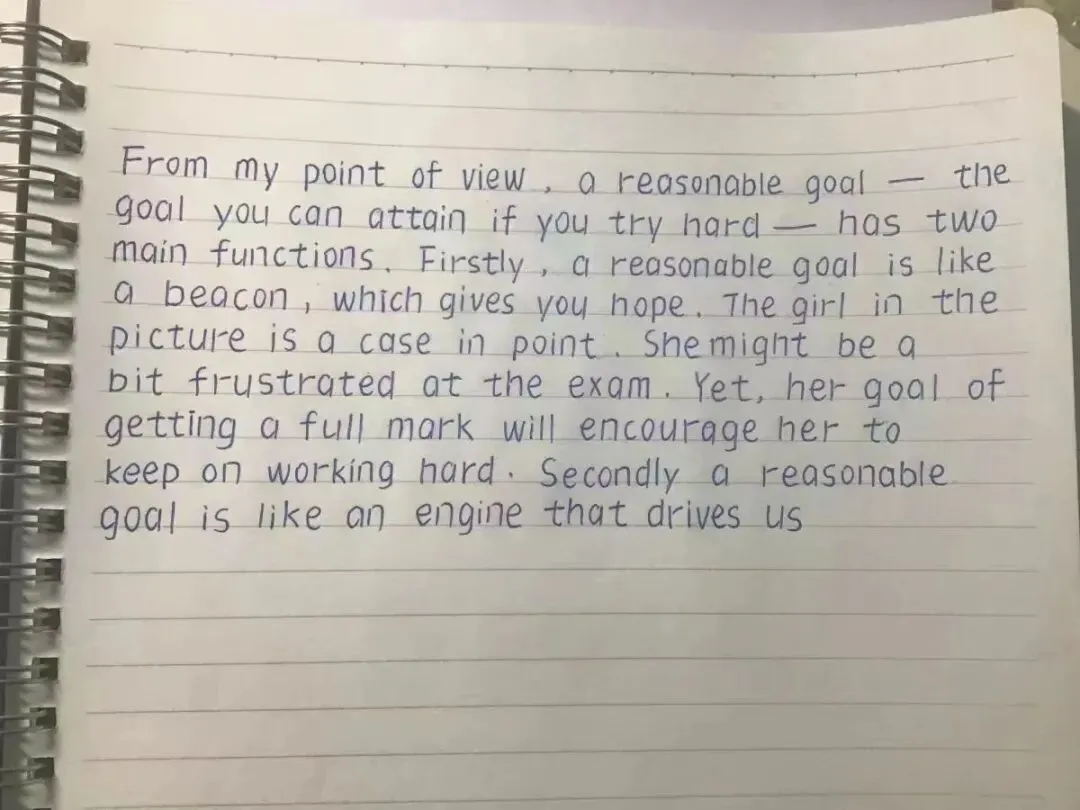 From my point of view, a reasonable goal — the
goal you can attain if you try hard — has two
main functions. Firstly, a reasonable goal is like
a beacon, which gives you hope. The girl in the
picture is a case in point. She might be a
bit frustrated at the exam. Yet, her goal of
getting a full mark will encourage her to
keep on working hard. Secondly a reasonable
goal is like an engine that drives us